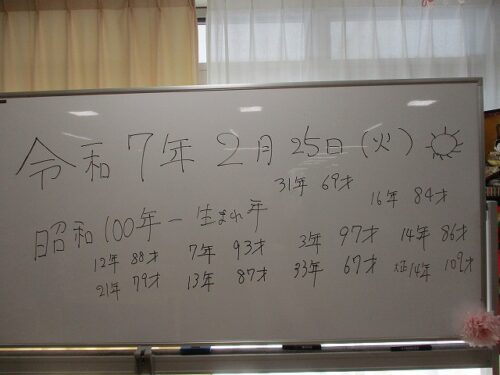 令和7年 2月 25日(火)
31年 69才
16年 84才
昭和100年-生まれ年
12年 88才 7年 93才 3年 97才 14年 86才
21年 79才 13年 87才 33年 67才 大正14年 109才